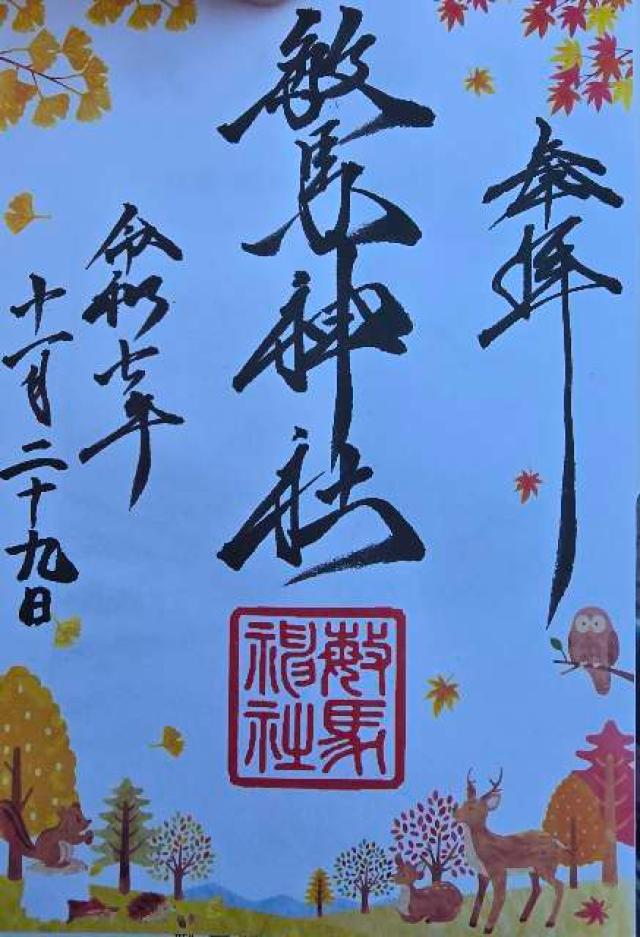 奉拝
敏馬神社
敏馬
神社
令和七年
十一月二十九日